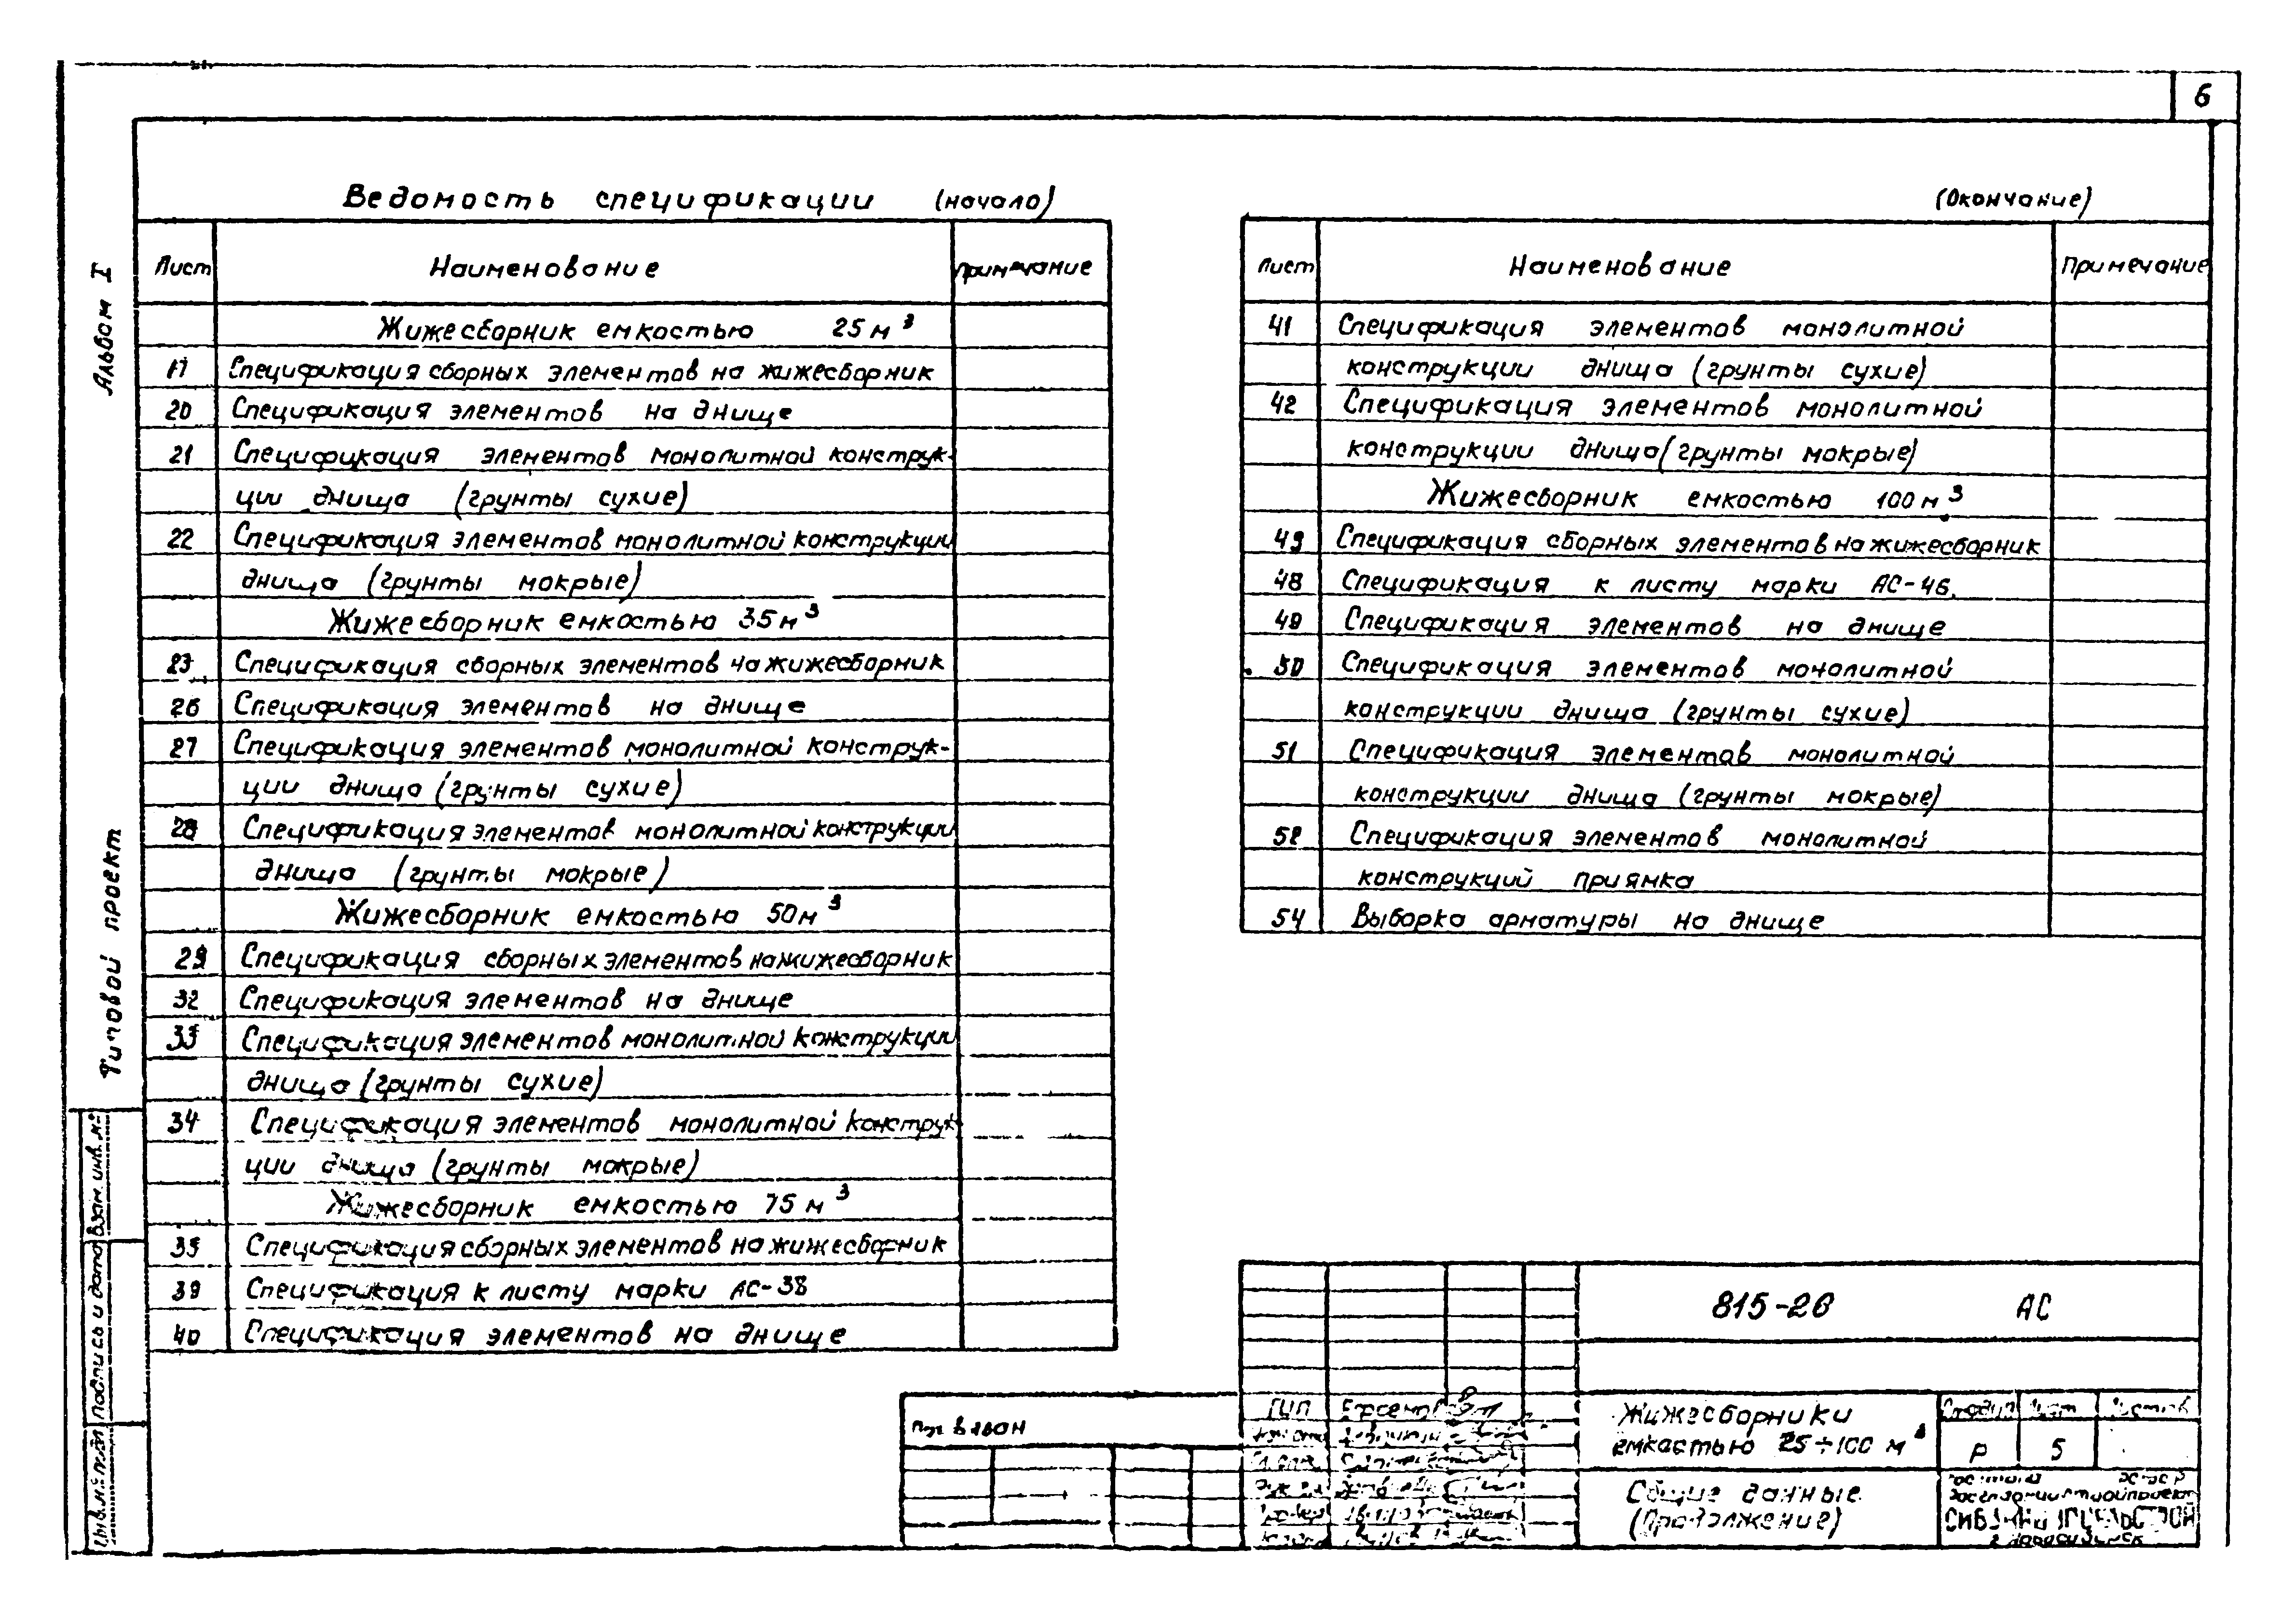 6
Альбом I
Типовой проект
Взам. инв. №
Подпись и дата
Инв. № подл
Ведомость спецификации (начало)
Лист Наименование Примечание
Жижесборник емкостью 25 м³
17 Спецификация сборных элементов на жижесборник
20 Спецификация элементов на днище
21 Спецификация элементов монолитной конструк-
ции днища (грунты сухие)
22 Спецификация элементов монолитной конструкции
днища (грунты мокрые)
Жижесборник емкостью 35 м³
23 Спецификация сборных элементов на жижесборник
26 Спецификация элементов на днище
27 Спецификация элементов монолитной конструк-
ции днища (грунты сухие)
28 Спецификация элементов монолитной конструкции
днища (грунты мокрые)
Жижесборник емкостью 50 м³
29 Спецификация сборных элементов на жижесборник
32 Спецификация элементов на днище
33 Спецификация элементов монолитной конструкции
днища (грунты сухие)
34 Спецификация элементов монолитной конструк
ции днища (грунты мокрые)
Жижесборник емкостью 75 м³
35 Спецификация сборных элементов на жижесборник
39 Спецификация к листу марки АС-38
40 Спецификация элементов на днище
(Окончание)
Лист Наименование Примечание
41 Спецификация элементов монолитной
конструкции днища (грунты сухие)
42 Спецификация элементов монолитной
конструкции днища (грунты мокрые)
Жижесборник емкостью 100 м³
43 Спецификация сборных элементов на жижесборник
48 Спецификация к листу марки АС-46.
49 Спецификация элементов на днище
50 Спецификация элементов монолитной
конструкции днища (грунты сухие)
51 Спецификация элементов монолитной
конструкции днища (грунты мокрые)
52 Спецификация элементов монолитной
конструкций приямка
54 Выборка арматуры на днище
815-26 АС
Привязан
ГИП
Жижесборники
емкостью 25÷100 м³
Стадия Лист Листов
Р 5
Общие данные
(Продолжение)